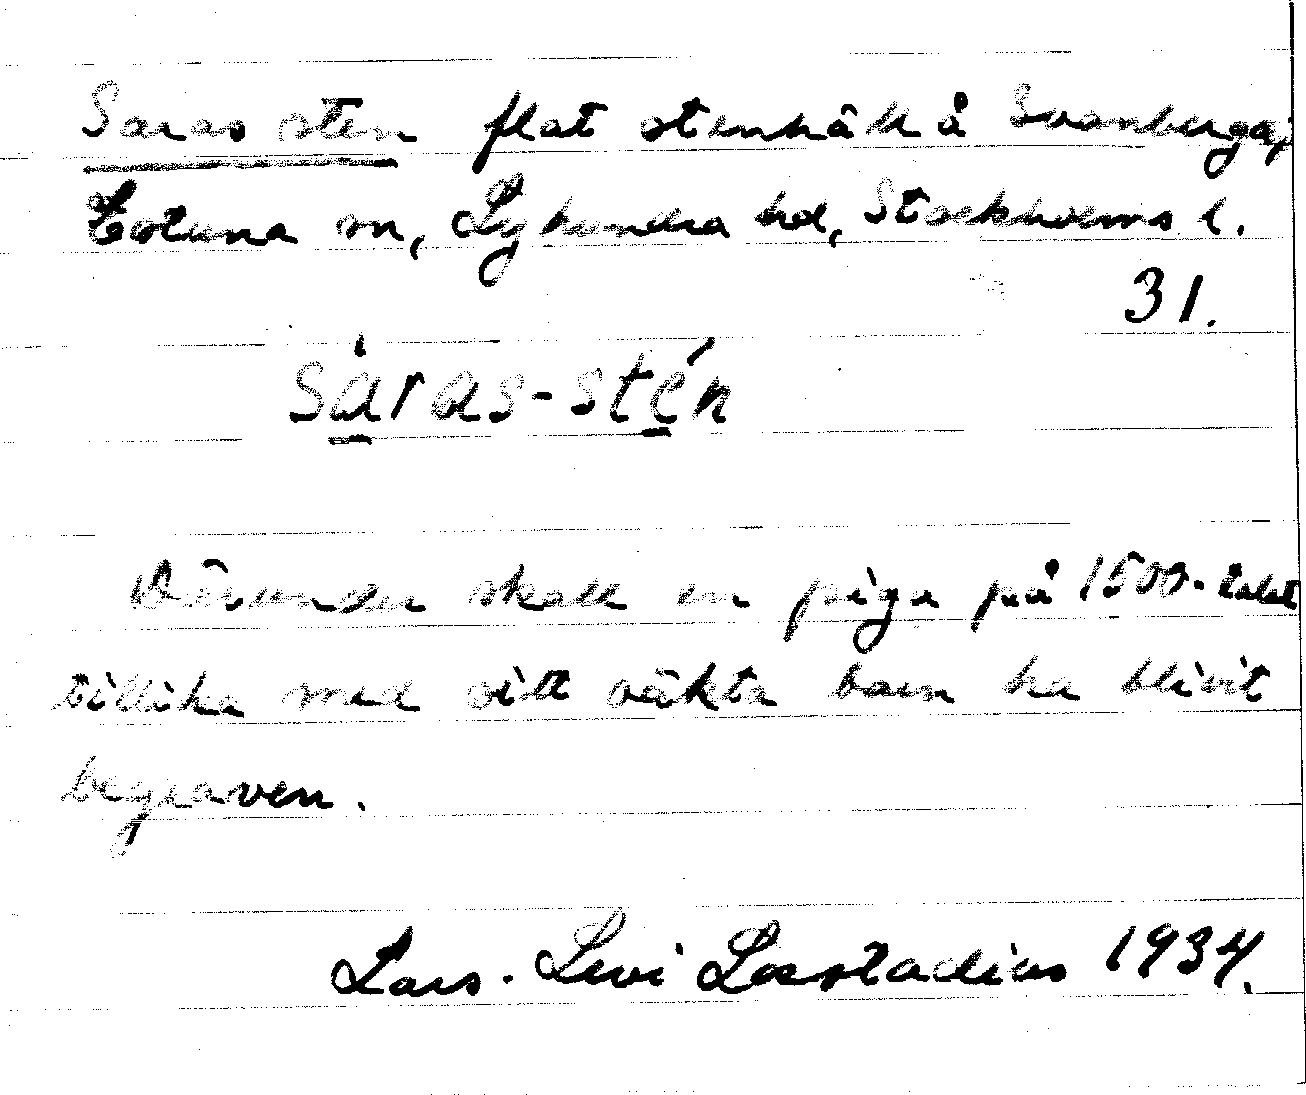 Saras sten flat stenhäll å Svanberga,
Estuna sn, Lyhundra hd, Stockholms l.
31.
sáras-stén
Därunder skall en piga på 1500-talet
tillika med sitt oäkta barn ha blivit
begraven.
Lars-Levi Læstadius 1934.